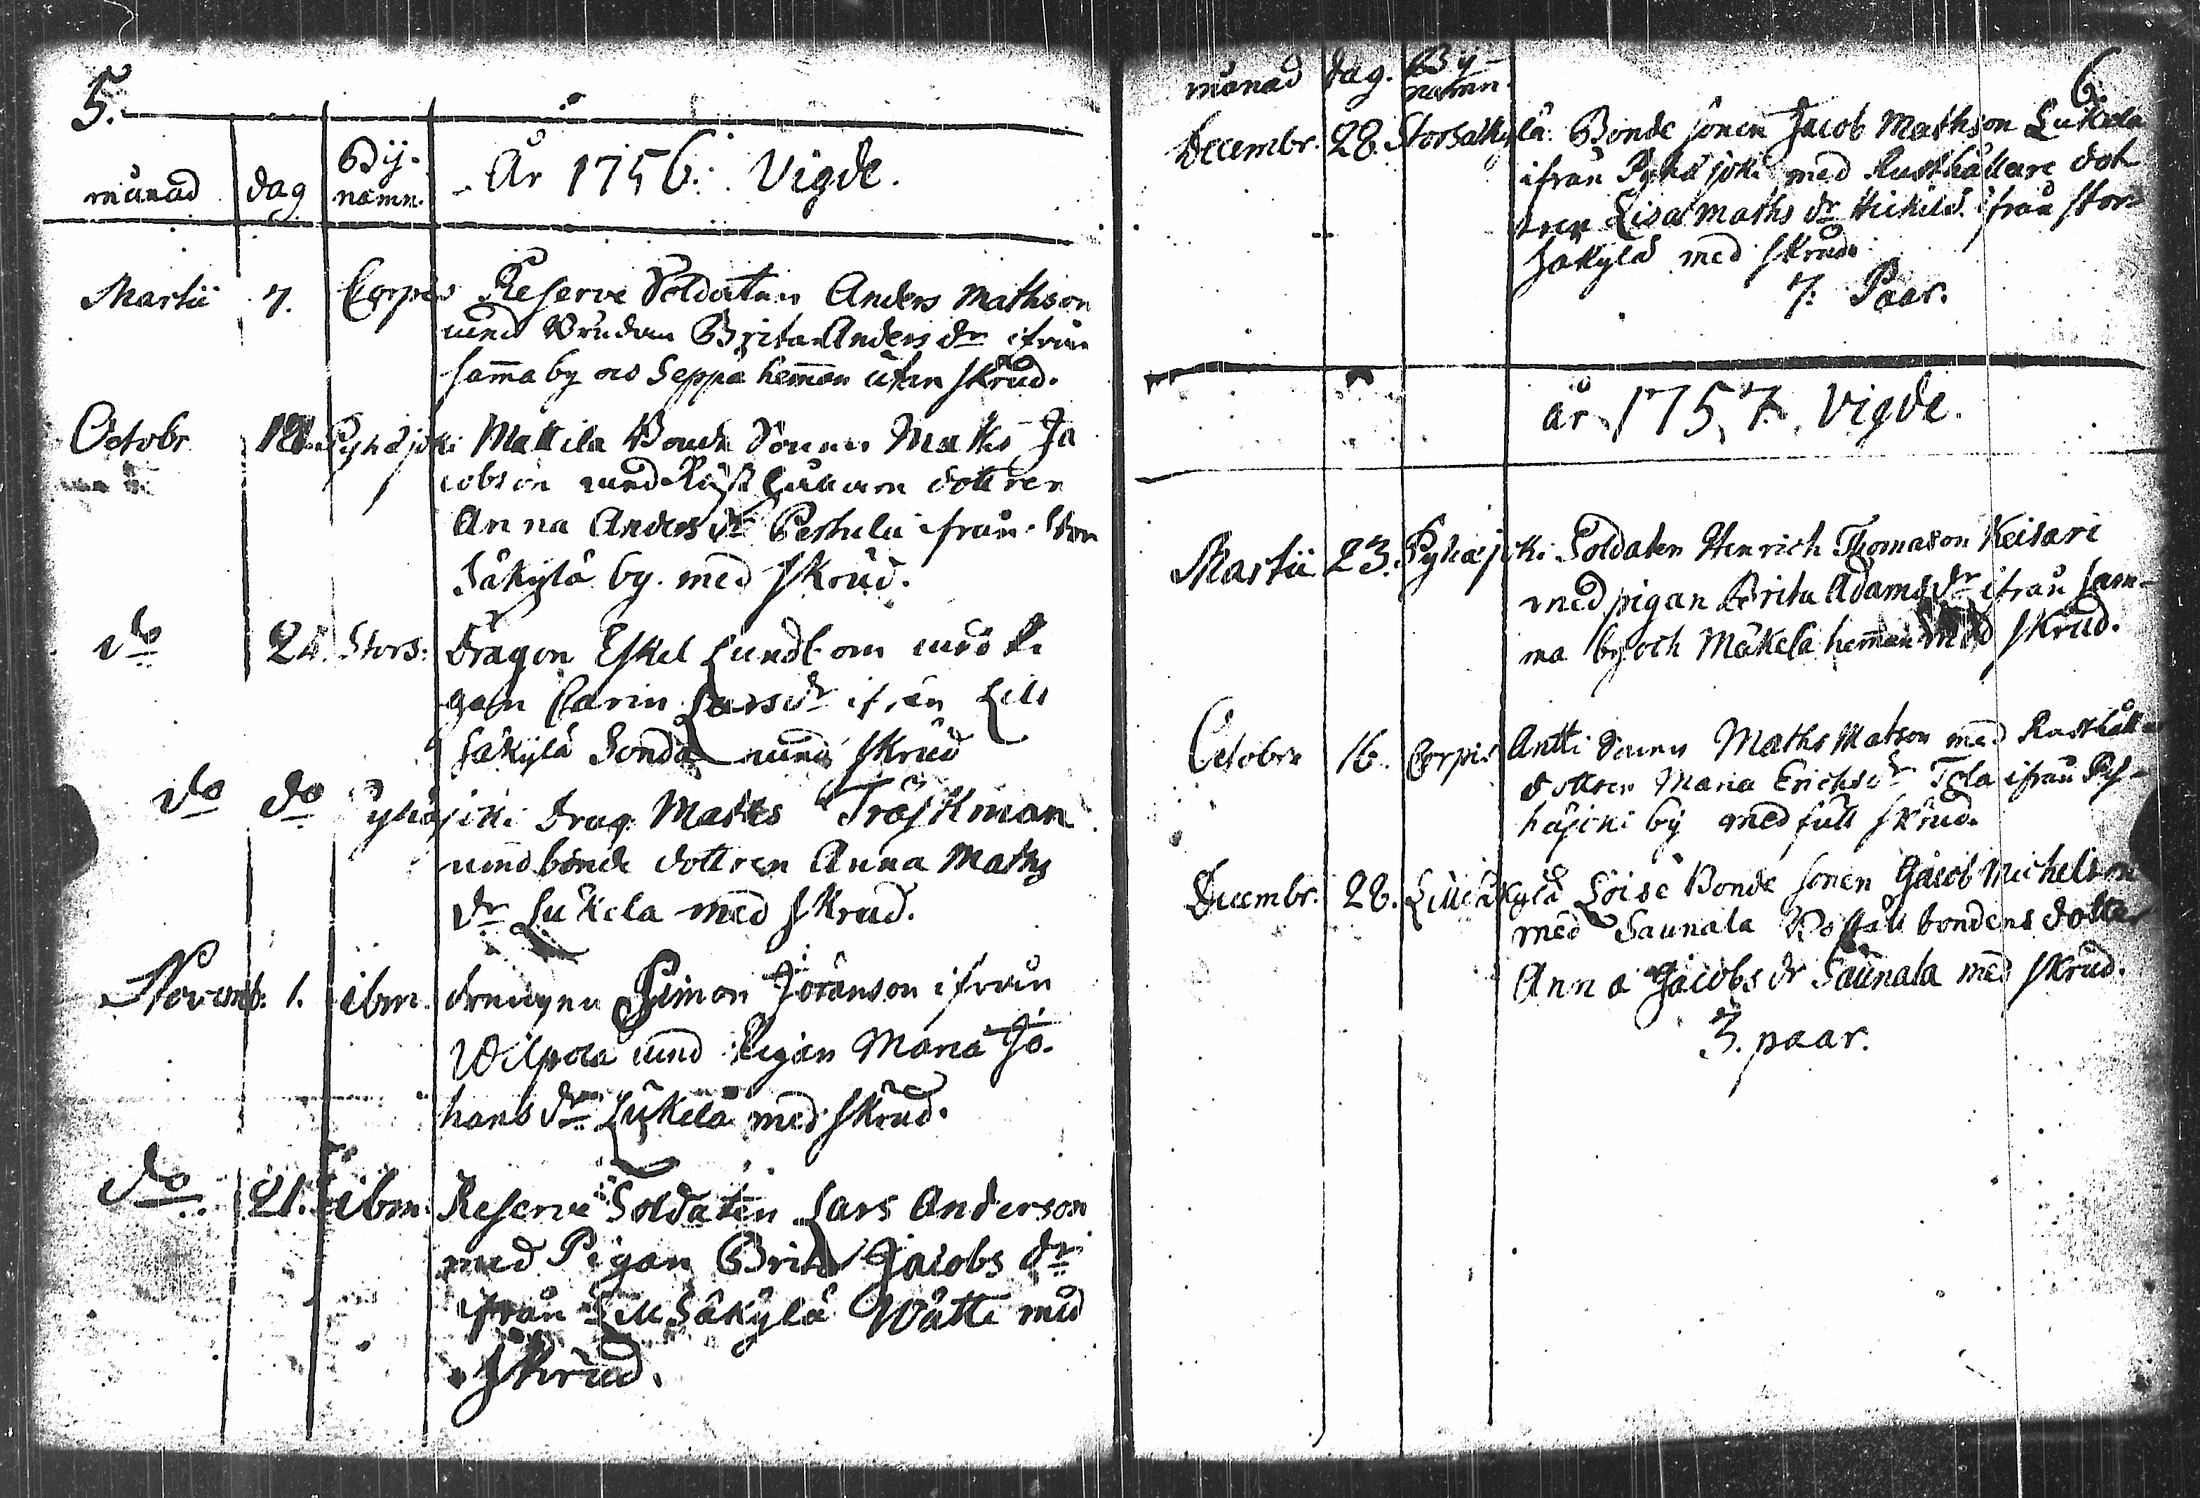 5.
månad dag Bij-namn. År 1756. Vigde.
Martii 7. Corpis Reserve Soldaten Anders Mathson
med Brudan Brita Anders dr ifrån
sam̅a by os Seppä hem̅an utan skrud.
Octobr 18. Pyhäjoki Mattila Bonde Sonen Maths Ja
cobson med Rusthållaren dottren
Anna Anders dr Pertula ifrån Stor
Säkylä by. med skrud.
do 24. Stors: Dragon Eskel Lundbom med Pi
gan Carin Lars dr ifrån Lill
säkylä Sonda med skrud
do do Pyhäjoki Drag. Maths Träskman
med bonde dottren Anna Maths
dr Lukela med skrud.
Novemb. 1. ibm. drengen Simon Jöranson ifrån
Wilpola med Pigan Maria Jo-
hans dr Lukela med skrud.
do 21. ibm. Reserve Soldaten Lars Anderson
med Pigan Brita Jacobs dr
ifrån Lill Säkylä Wättі med
skrud.
6.
månad dag. By-namn.
Decembr. 28. Storsäkylä Bonde sonen Jacob Mathson Lukela
ifrån Pyhäjoki med Rusthållare dot
tren Lisa Maths dr ifrån Stor-
säkylä med skrud
7. Paar.
år 1757. Vigde.
Martii 23. Pyhäjoki Soldaten Henrich Thomason Keisari
med pigan Brita Adams dr ifrån sam-
ma by och Mäkelä hem̅an med skrud.
Octobr 16. Corpis Antti Sonen Maths Matson med Rusthåll
dottren Maria Erichs dr Tola ifrån Py-
häjoki bÿ med full skrud.
Decembr. 28. Lillsäkylä Löise Bonde sonen Jacob Michelson
med Saunala Boställ bondens dotter
Anna Jacobs dr Saunala med skrud.
3. paar.